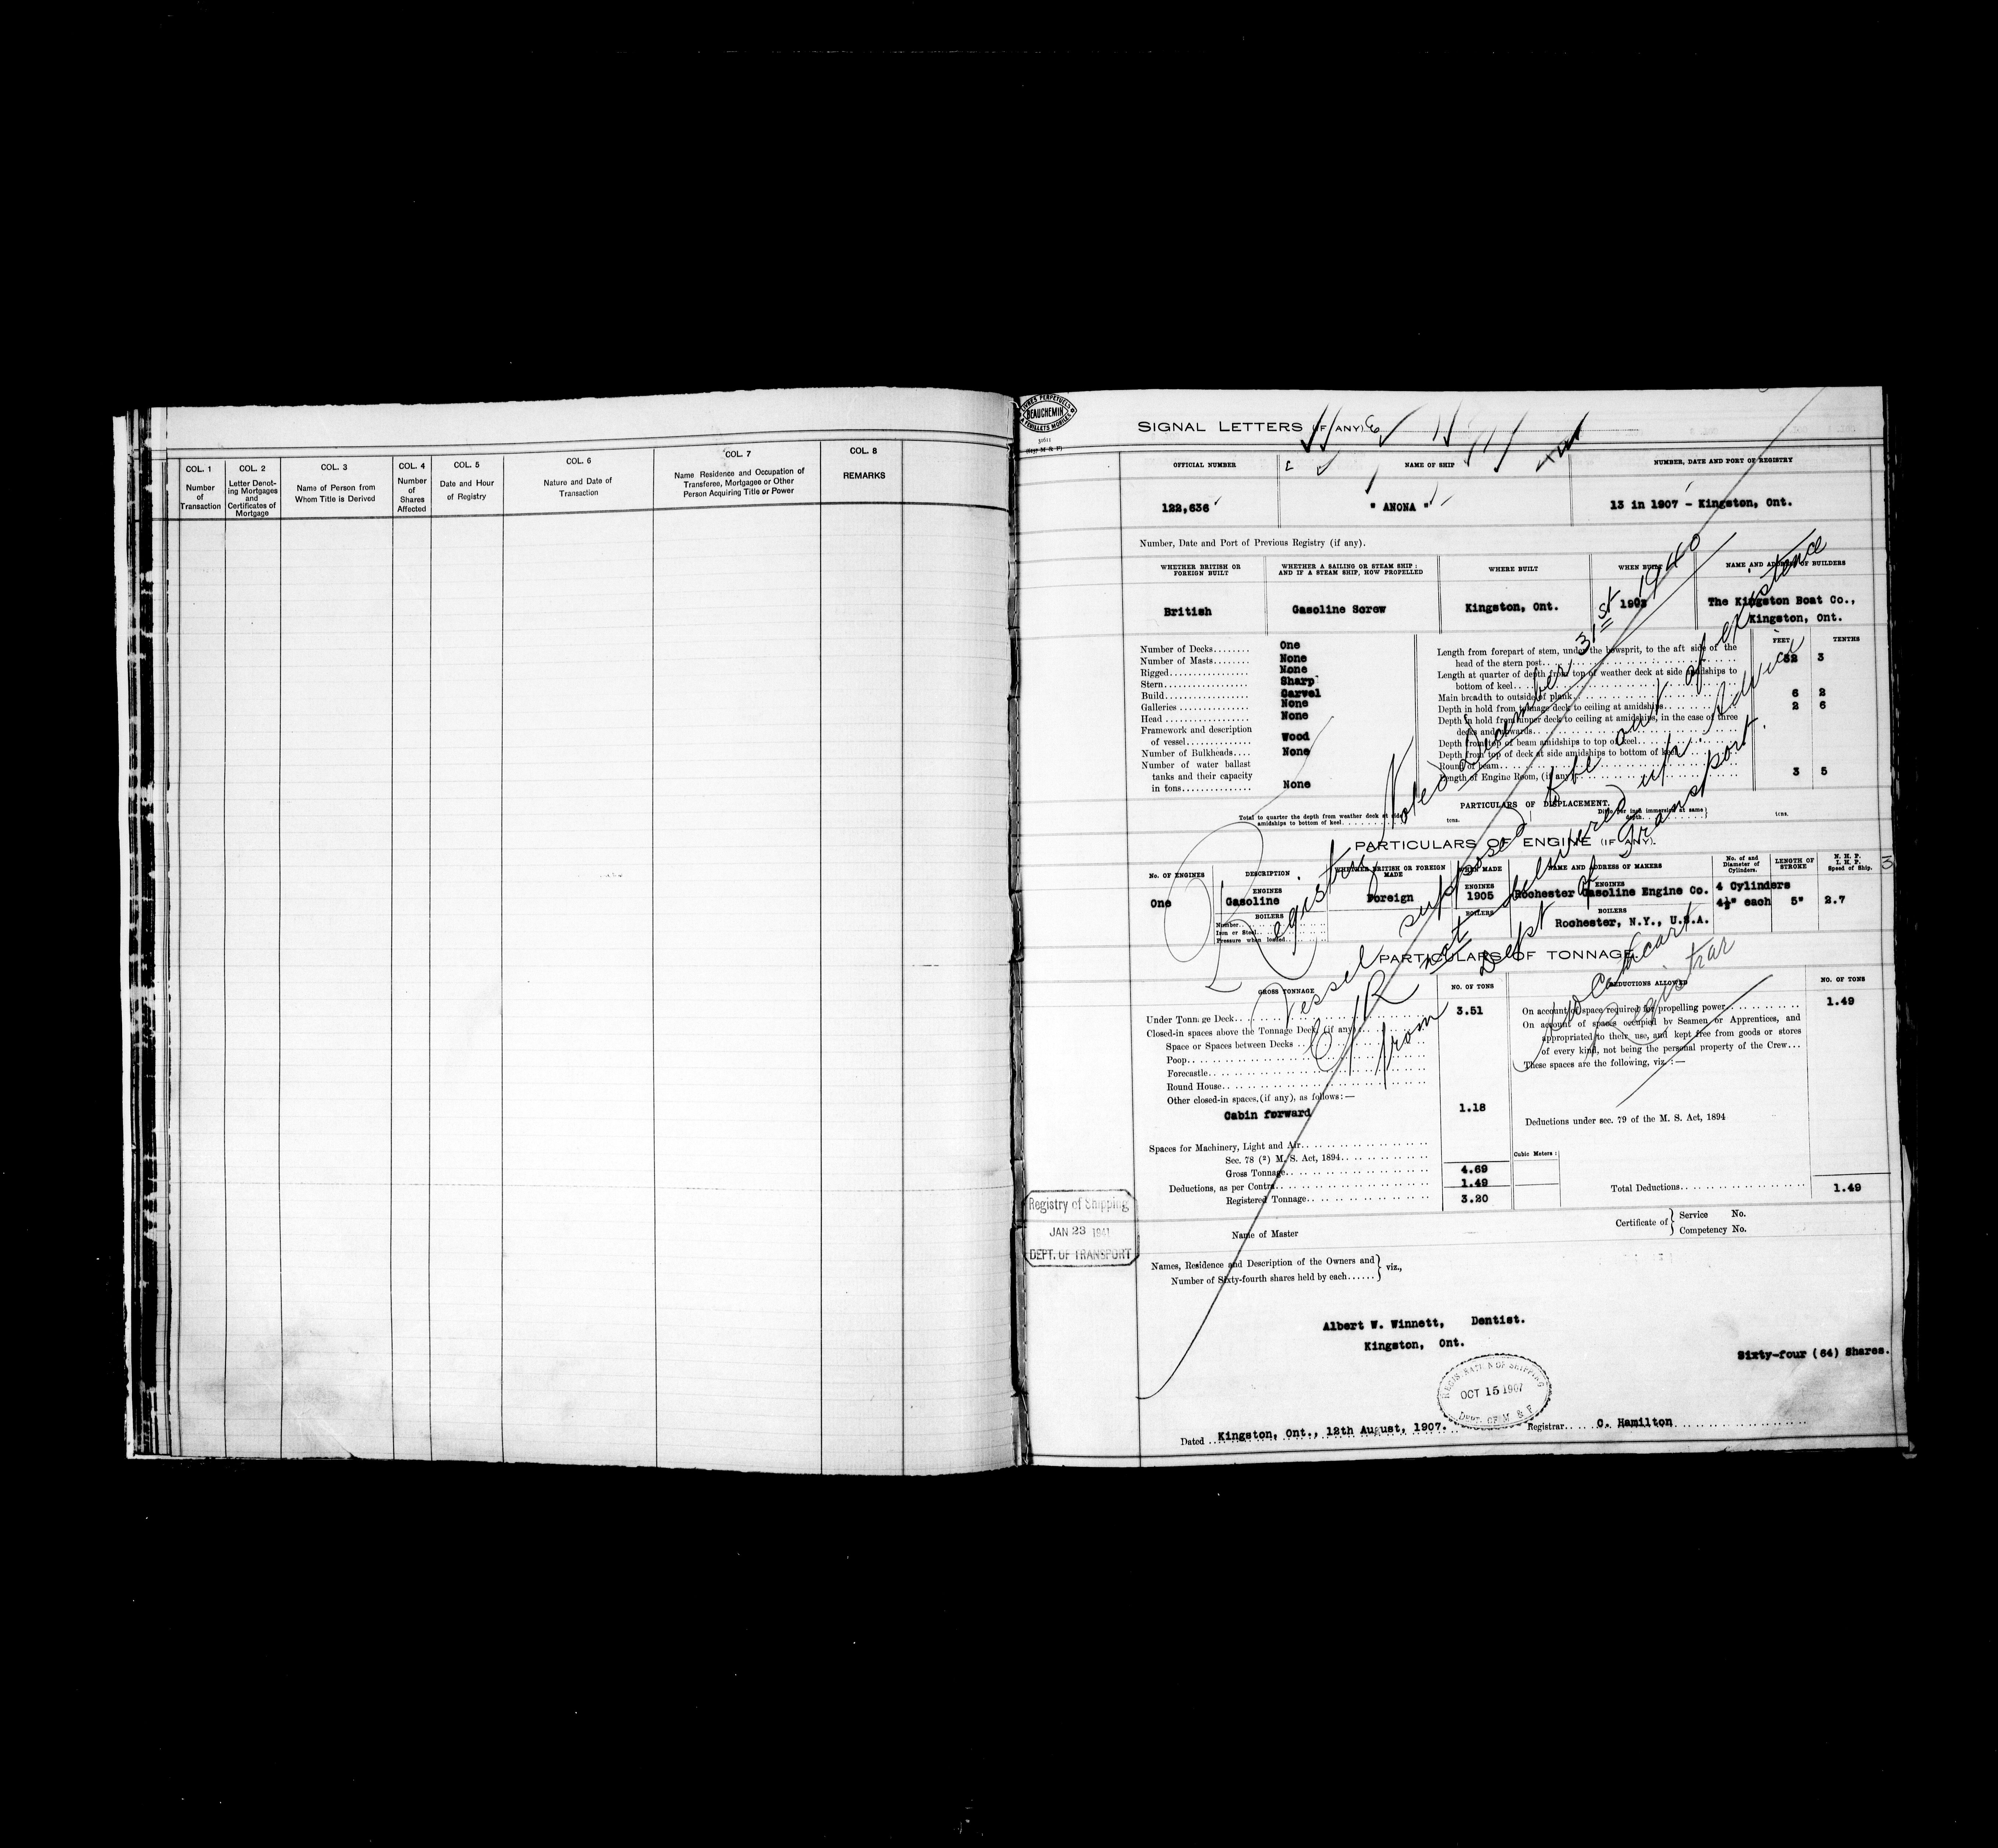 COL. 1
Number
of
Transaction
COL. 2
Letter Denot-
ing Mortgages
and
Certificates of
Mortgage
COL. 3
Name of Person from
Whom Title is Derived
COL. 4
Number
of
Shares
Affected
COL. 5
Date and Hour
of Registry
COL. 6
Nature and Date of
Transaction
COL. 7
Name Residence and Occupation of
Transferee, Mortgagee or Other
Person Acquiring Title or Power
COL. 8
REMARKS
LIVRES PERPETUELS
BEAUCHEMIN
FEUILLETS MOBILES
SIGNAL LETTERS (IF ANY)
OFFICIAL NUMBER
NAME OF SHIP
NUMBER, DATE AND PORT OF REGISTRY
122,636
" ANONA "
13 in 1907 - Kingston, Ont.
Number, Date and Port of Previous Registry (if any).
WHETHER BRITISH OR
FOREIGN BUILT
WHETHER A SAILING OR STEAM SHIP:
AND IF A STEAM SHIP, HOW PROPELLED
WHERE BUILT
WHEN BUILT
NAME AND ADDRESS OF BUILDERS
British
Gasoline Screw
Kingston, Ont.
The Kingston Boat Co.,
Kingston, Ont.
Number of Decks........ One
Number of Masts....... None
Rigged................. None
Stern.................. Sharp
Build.................. Carvel
Galleries............... None
Head.................. None
Framework and description
of vessel.............. Wood
Number of Bulkheads.... None
Number of water ballast
tanks and their capacity
in tons............... None
FEET TENTHS
Length from forepart of stem, under the bowsprit, to the aft side of the
head of the stern post 32 3
Length at quarter of depth from top of weather deck at side amidships to
bottom of keel
Main breadth to outside of plank 6 2
Depth in hold from tonnage deck to ceiling at amidships 2 6
Depth in hold from upper deck to ceiling at amidships, in the case of three
decks and upwards
Depth from top of beam amidships to top of keel
Depth from top of deck at side amidships to bottom of keel
Round of beam
Length of Engine Room, (if any) 3 5
PARTICULARS OF DISPLACEMENT.
Total to quarter the depth from weather deck at side
amidships to bottom of keel tons.
Ditto per inch immersion at same
depth tons.
PARTICULARS OF ENGINE (IF ANY).
No. OF ENGINES
DESCRIPTION
WHETHER BRITISH OR FOREIGN
MADE
WHEN MADE
NAME AND ADDRESS OF MAKERS
No. of and
Diameter of
Cylinders.
LENGTH OF
STROKE
N. H. P.
I. H. P.
Speed of Ship.
One
ENGINES
Gasoline
Foreign
ENGINES
1905
ENGINES
Rochester Gasoline Engine Co.
4 Cylinders
4½" each
5"
2.7
BOILERS
Number
Iron or Steel
Pressure when loaded
BOILERS
BOILERS
Rochester, N.Y., U.S.A.
3
PARTICULARS OF TONNAGE
GROSS TONNAGE
NO. OF TONS
DEDUCTIONS ALLOWED
NO. OF TONS
Under Tonnage Deck 3.51
Closed-in spaces above the Tonnage Deck, (if any)
Space or Spaces between Decks
Poop
Forecastle
Round House
Other closed-in spaces, (if any), as follows:—
Cabin forward 1.18
Spaces for Machinery, Light and Air
Sec. 78 (2) M. S. Act, 1894
Gross Tonnage 4.69
Deductions, as per Contra 1.49
Registered Tonnage 3.20
On account of space required for propelling power 1.49
On account of spaces occupied by Seamen or Apprentices, and
appropriated to their use, and kept free from goods or stores
of every kind, not being the personal property of the Crew...
These spaces are the following, viz.:—
Deductions under sec. 79 of the M. S. Act, 1894
Cubic Meters:
Total Deductions 1.49
Registry Noted December 31st 1940
Vessel supposed to be out of existence
C/R not delivered up. Advice
from Dept of Transport.
Registrar
Registry of Shipping
JAN 23 1941
DEPT. OF TRANSPORT
Name of Master
Certificate of } Service No.
Competency No.
Names, Residence and Description of the Owners and
Number of Sixty-fourth shares held by each...... } viz.,
Albert W. Winnett, Dentist.
Kingston, Ont.
Sixty-four (64) Shares.
OCT 15 1907
DEPT. OF M. & F.
Dated Kingston, Ont., 12th August, 1907.
Registrar C. Hamilton